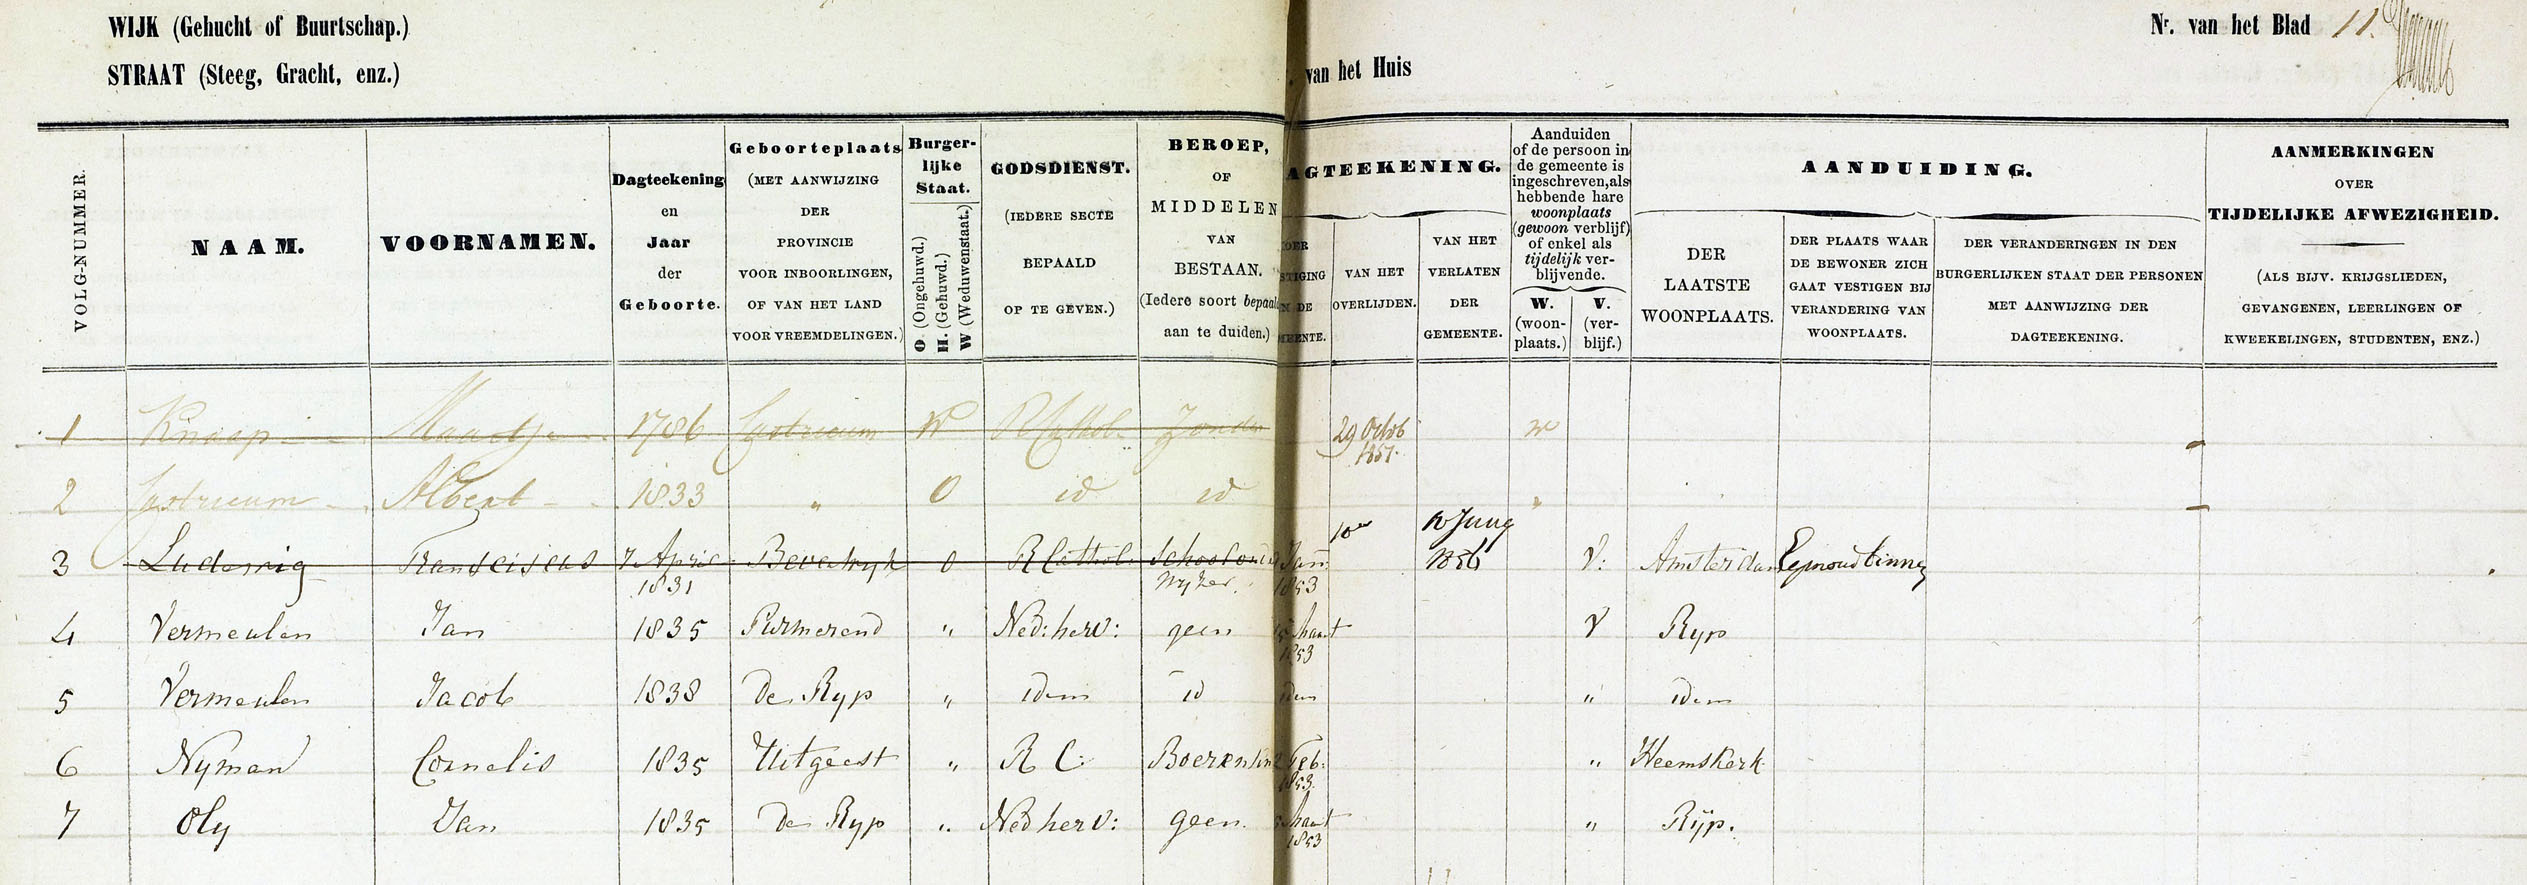 WIJK (Gehucht of Buurtschap.)
STRAAT (Steeg, Gracht, enz.)
van het Huis
Nr. van het Blad 11.
VOLG-NUMMER
NAAM.
VOORNAMEN.
Dagteekening
en
Jaar
der
Geboorte.
Geboorteplaats
(MET AANWIJZING
DER
PROVINCIE
VOOR INBOORLINGEN,
OF VAN HET LAND
VOOR VREEMDELINGEN.)
Burger-
lijke
Staat.
O. (Ongehuwd.)
H. (Gehuwd.)
W (Weduwenstaat.)
GODSDIENST.
(IEDERE SECTE
BEPAALD
OP TE GEVEN.)
BEROEP,
OF
MIDDELEN
VAN
BESTAAN.
(Iedere soort bepaal
aan te duiden.)
AGTEEKENING.
DER
STIGING
N DE
MEENTE.
VAN HET
OVERLIJDEN.
VAN HET
VERLATEN
DER
GEMEENTE.
Aanduiden
of de persoon in
de gemeente is
ingeschreven, als
hebbende hare
woonplaats
(gewoon verblijf)
of enkel als
tijdelijk ver-
blijvende.
W.
(woon-
plaats.)
V.
(ver-
blijf.)
AANDUIDING.
DER
LAATSTE
WOONPLAATS.
DER PLAATS WAAR
DE BEWONER ZICH
GAAT VESTIGEN BIJ
VERANDERING VAN
WOONPLAATS.
DER VERANDERINGEN IN DEN
BURGERLIJKEN STAAT DER PERSONEN
MET AANWIJZING DER
DAGTEEKENING.
AANMERKINGEN
OVER
TIJDELIJKE AFWEZIGHEID.
(ALS BIJV. KRIJGSLIEDEN,
GEVANGENEN, LEERLINGEN OF
KWEEKELINGEN, STUDENTEN, ENZ.)
1 Knaap Maartje 1786 Castricum W R Cathol. Zonder 29 Octob w
1857.
2 Castricum Albert 1833 " O id id "
3 Ludewig Franciscus 7 April Beverwyk O R Cathol. Schoolond Jan 10 Juny V: Amsterdam Egmond binnen
1831 wyzer. 1853 1856
4 Vermeulen Jan 1835 Purmerend " Ned: herv: geen Maart V Ryp
1853
5 Vermeulen Jacob 1838 De Ryp " idem id idem " idem
6 Nyman Cornelis 1835 Uitgeest " R C: Boerenkn 2 Feb: " Heemskerk
1853.
7 Oly Jan 1835 De Ryp " Ned herv: geen. Maart " Rijp.
1853